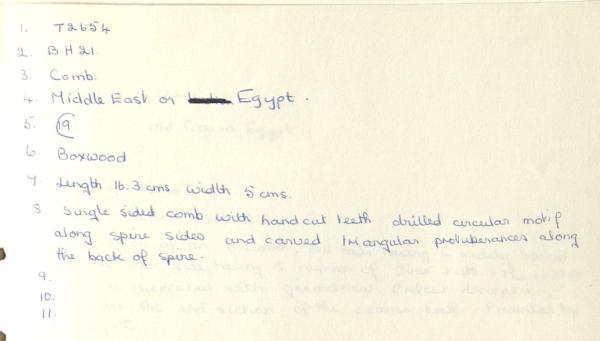 1. T2654
2. BH21.
3. Comb.
4. Middle East or Egypt.
5. 19
6. Boxwood
7. Length 16.3 cms width 5 cms.
8. Single sided comb with hand cut teeth drilled circular motif
along spine sides and carved triangular protuberances along
the back of spine.
9.
10.
11.